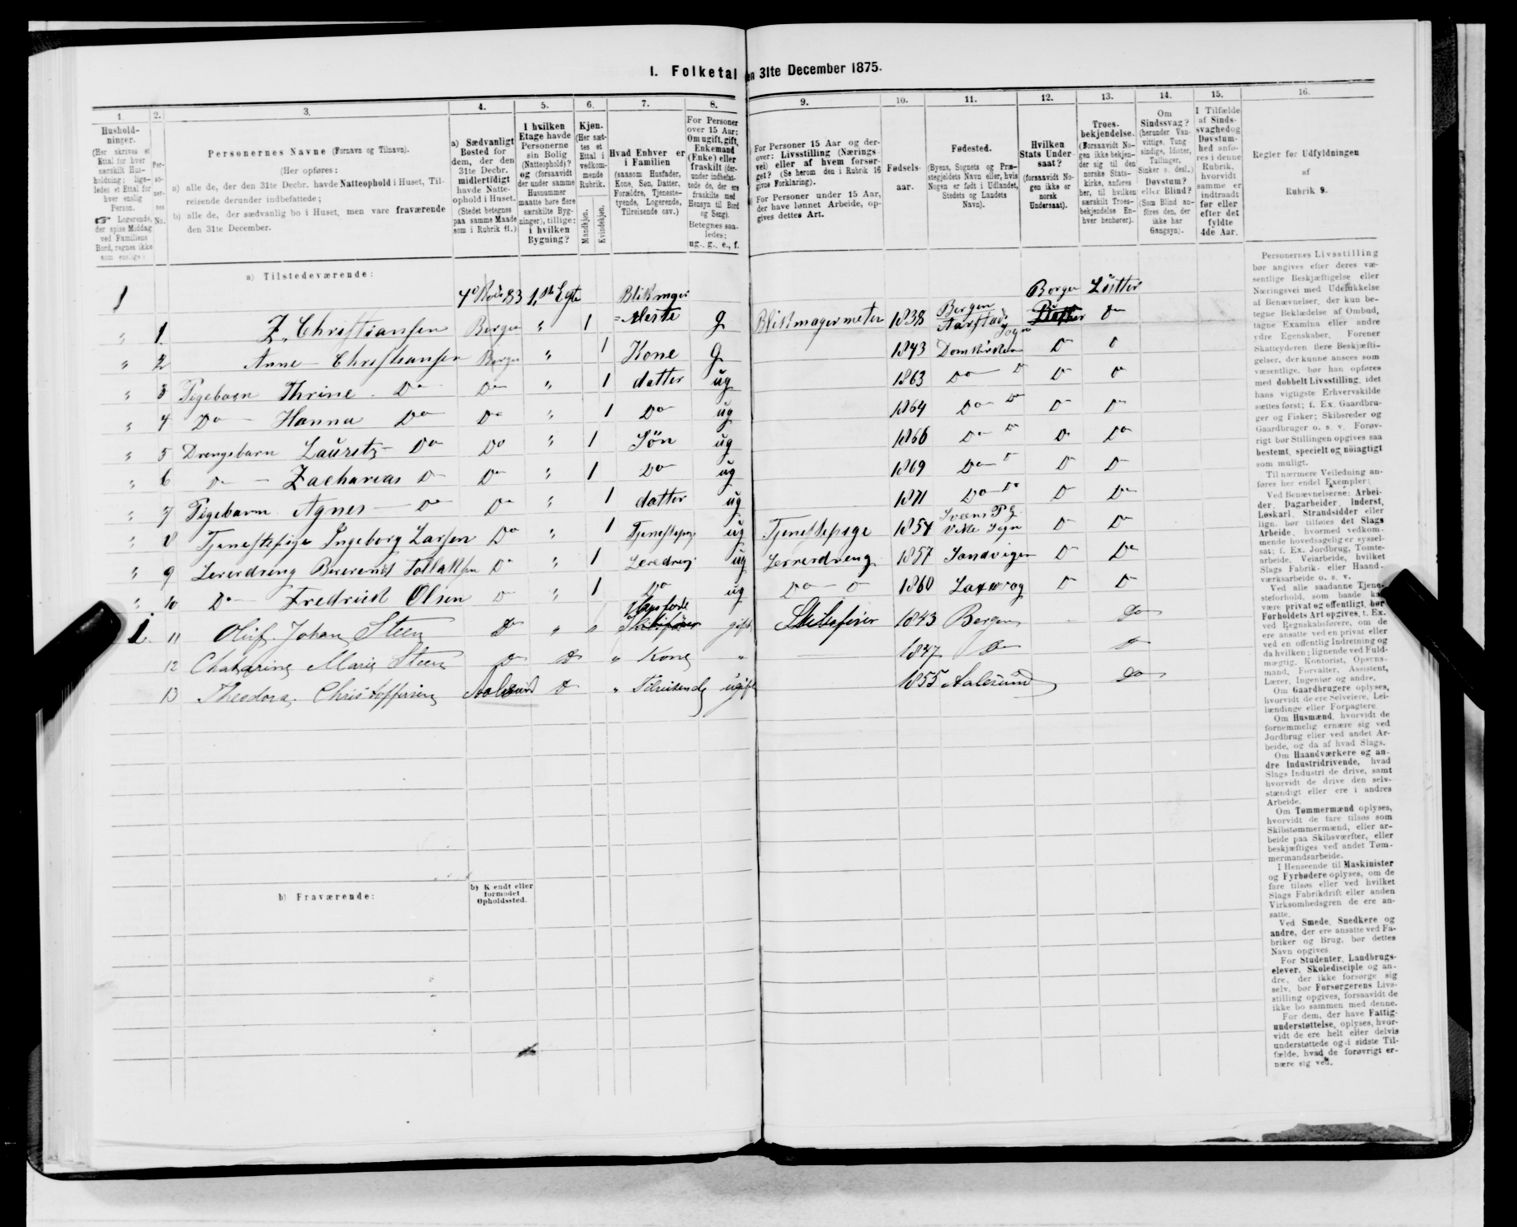 I. Folketal den 31te December 1875.
1.
Hushold-
ninger.
2.
Per-
so-
ner-
nes
No.
3.
Personernes Navne (Fornavn og Tilnavn).
(Her opføres:
a) alle de, der den 31te Decbr. havde Natteophold i Huset, Til-
reisende derunder indbefattede;
b) alle de, der sædvanlig bo i Huset, men vare fraværende
den 31te December.
4.
a) Sædvanligt
Bosted for
dem, der den
31te Decbr.
midlertidigt
havde Natte-
ophold i Huset.
(Stedet betegnes
paa samme Maade
som i Rubrik 11.)
5.
I hvilken
Etage havde
Personerne
sin Bolig
(Natteophold)?
og (forsaavidt
der under samme
Husnummer
maatte høre flere
særskilte Byg-
ninger), tillige:
i hvilken
Bygning?
6.
Kjøn.
(Her sæt-
tes et
Ettal i
vedkom-
mende
Rubrik.
Mandkjøn.
Kvindekjøn.
7.
Hvad Enhver er
i Familien
(saasom Husfader,
Kone, Søn, Datter,
Forældre, Tjeneste-
tyende, Logerende,
Tilreisende osv.)
8.
For Personer
over 15 Aar:
Om ugift, gift,
Enkemand
(Enke) eller
fraskilt
Betegnes saa-
ledes:
ug., g., e., f.
9.
For Personer 15 Aar og der-
over: Livsstilling (Nærings-
vei) eller af hvem forsør-
get? (Se herom den i Rubrik 16
givne Forklaring).
For Personer under 15 Aar,
der have lønnet Arbeide, op-
gives dettes Art.
10.
Fødsels-
aar.
11.
Fødested.
(Byens, Sognets og Præ-
stegjeldets Navn eller, hvis
Nogen er født i Udlandet,
Stedets og Landets
Navn).
12.
Hvilken
Stats Under-
saat?
(forsaavidt No-
gen ikke er
norsk
Undersaat).
13.
Troes-
bekjendelse.
(Forsaavidt No-
gen ikke bekjen-
der sig til den
norske Stats-
kirke, anføres
her, til hvilken
særskilt Troes-
bekjendelse En-
hver henhører).
14.
Om
Sindssvag?
(herunder Van-
vittige, Tung-
sindige, Idioter,
Tullinger,
Sinker o. desl.)
Døvstum?
eller Blind?
(Som Blind an-
føres den, der
ikke har
Gangsyn).
15.
I Tilfælde
af Sinds-
svaghed og
Døvstum-
hed anfø-
res i denne
Rubrik,
hvorvidt
samme er
indtraadt
før eller
efter det
fyldte
4de Aar.
16.
Regler for Udfyldningen
af
Rubrik 9.
a) Tilstedeværende:
1 Blikmager Borger Lutter
" 1 Z. Christiansen Bergen " 1 Mester g Blikmagermester 1838 Bergen Do
" 2 Anne Christiansen Bergen " 1 Kone g 1843 Domkirken Do
" 3 Pigebarn Thrine Do Do " 1 datter ug 1863 Do Do Do
" 4 Do Hanna Do Do " 1 Do ug 1864 Do Do Do
" 5 Drengebarn Lauretz Do Do " 1 Søn ug 1866 Do Do Do
" 6 Do Zacharias Do Do " 1 Do ug 1869 Do Do Do
" 7 Pigebarn Agnes Do Do " 1 datter ug 1871 Do Do Do
" 8 Tjenestepige Ingeborg Larsen Do " 1 ug Tjenestepige 1854 Sogn Do Do
" 9 Do " 1 ug 1857 Sandvigen Do Do
" 10 Do Fredrick Olsen Do " 1 Do ug Do 1860 Do Do
1 11 Oluf Johan Steen Do " gift 1843 Bergen Do
12 Catharine Marie Steen Do Do " Kone " 1847 Do Do
13 Theodora Christoffersen Aalesund Do " ugift 1855 Aalesund Do
b) Fraværende:
b) Kjendt eller
formodet
Opholdssted.
Personernes Livsstilling
bør angives efter deres væ-
sentlige Beskjæftigelse eller
Næringsvei med Udelukkelse
af Benævnelser, der kun be-
tegne Beklædelse af Ombud,
tagne Examina eller andre
ydre Egenskaber. Forener
Skatteyderen flere Beskjæfti-
gelser, der kunne ansees som
væsentlige, bør han opføres
med dobbelt Livsstilling, idet
hans vigtigste Erhvervskilde
sættes først; f. Ex. Gaardbru-
ger og Fisker; Skibsreder og
Gaardbruger o. s. v. Forøv-
rigt bør Stillingen opgives saa
bestemt, specielt og nøiagtigt
som muligt.
Til nærmere Veiledning an-
føres her endel Exempler:
Ved Benævnelserne: Arbei-
der, Dagarbeider, Inderst,
Løskarl, Strandsidder eller
lign. bør tilføies det Slags
Arbeide, hvormed vedkom-
mende hovedsagelig er syssel-
sat; f. Ex. Jordbrug, Tomte-
arbeide, Veiarbeide, hvilket
Slags Fabrik- eller Haand-
værksarbeide o. s. v.
Ved alle saadanne Tjene-
steforhold, som baade kan
være privat og offentligt, bør
Forholdets Art opgives, t. Ex.
ved Regnskabsførere, om de
ere ansatte ved en privat eller
ved en offentlig Indretning og
da hvilken; lignende ved Fuld-
mægtig, Kontorist, Opsyns-
mand, Forvalter, Assistent,
Lærer, Ingeniør og andre.
Om Gaardbrugere oplyses,
hvorvidt de ere Selveiere, Lei-
lændinge eller Forpagtere.
Om Husmænd, hvorvidt de
fornemmelig ernære sig ved
Jordbrug eller ved andet Ar-
beide, og da af hvad Slags.
Om Haandværkere og an-
dre Industridrivende, hvad
Slags Industri de drive, samt
hvorvidt de drive den selv-
stændigt eller ere i andres
Arbeide.
Om Tømmermænd oplyses,
hvorvidt de fare tilsøs som
Skibstømmermænd, eller ar-
beide paa Skibsværfter, eller
beskjæftiges ved andet Tøm-
mermandsarbeide.
I Henseende til Maskinister
og Fyrbødere oplyses, om de
fare tilsøs eller ved hvilket
Slags Fabrikdrift eller anden
Virksomhedsgren de ere an-
satte.
Ved Smede, Snedkere og
andre, der ere ansatte ved Fa-
briker og Brug, bør dettes
Navn opgives.
For Studenter, Landbrugs-
elever, Skoledisciple og an-
dre, der ikke forsørge sig
selv, bør Forsørgerens Livs-
stilling opgives, forsaavidt de
ikke bo sammen med denne.
For dem, der have Fattig-
understøttelse, oplyses, hvor-
vidt de ere helt eller delvis
understøttede og i sidste Til-
fælde, hvad de forøvrigt er-
nære sig ved.